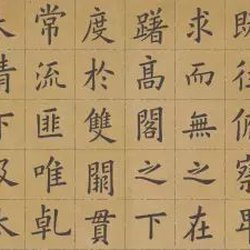 俯察
求而無之在
躇高閣之下
度於雙闕貫
常流匪唯乹
情下及